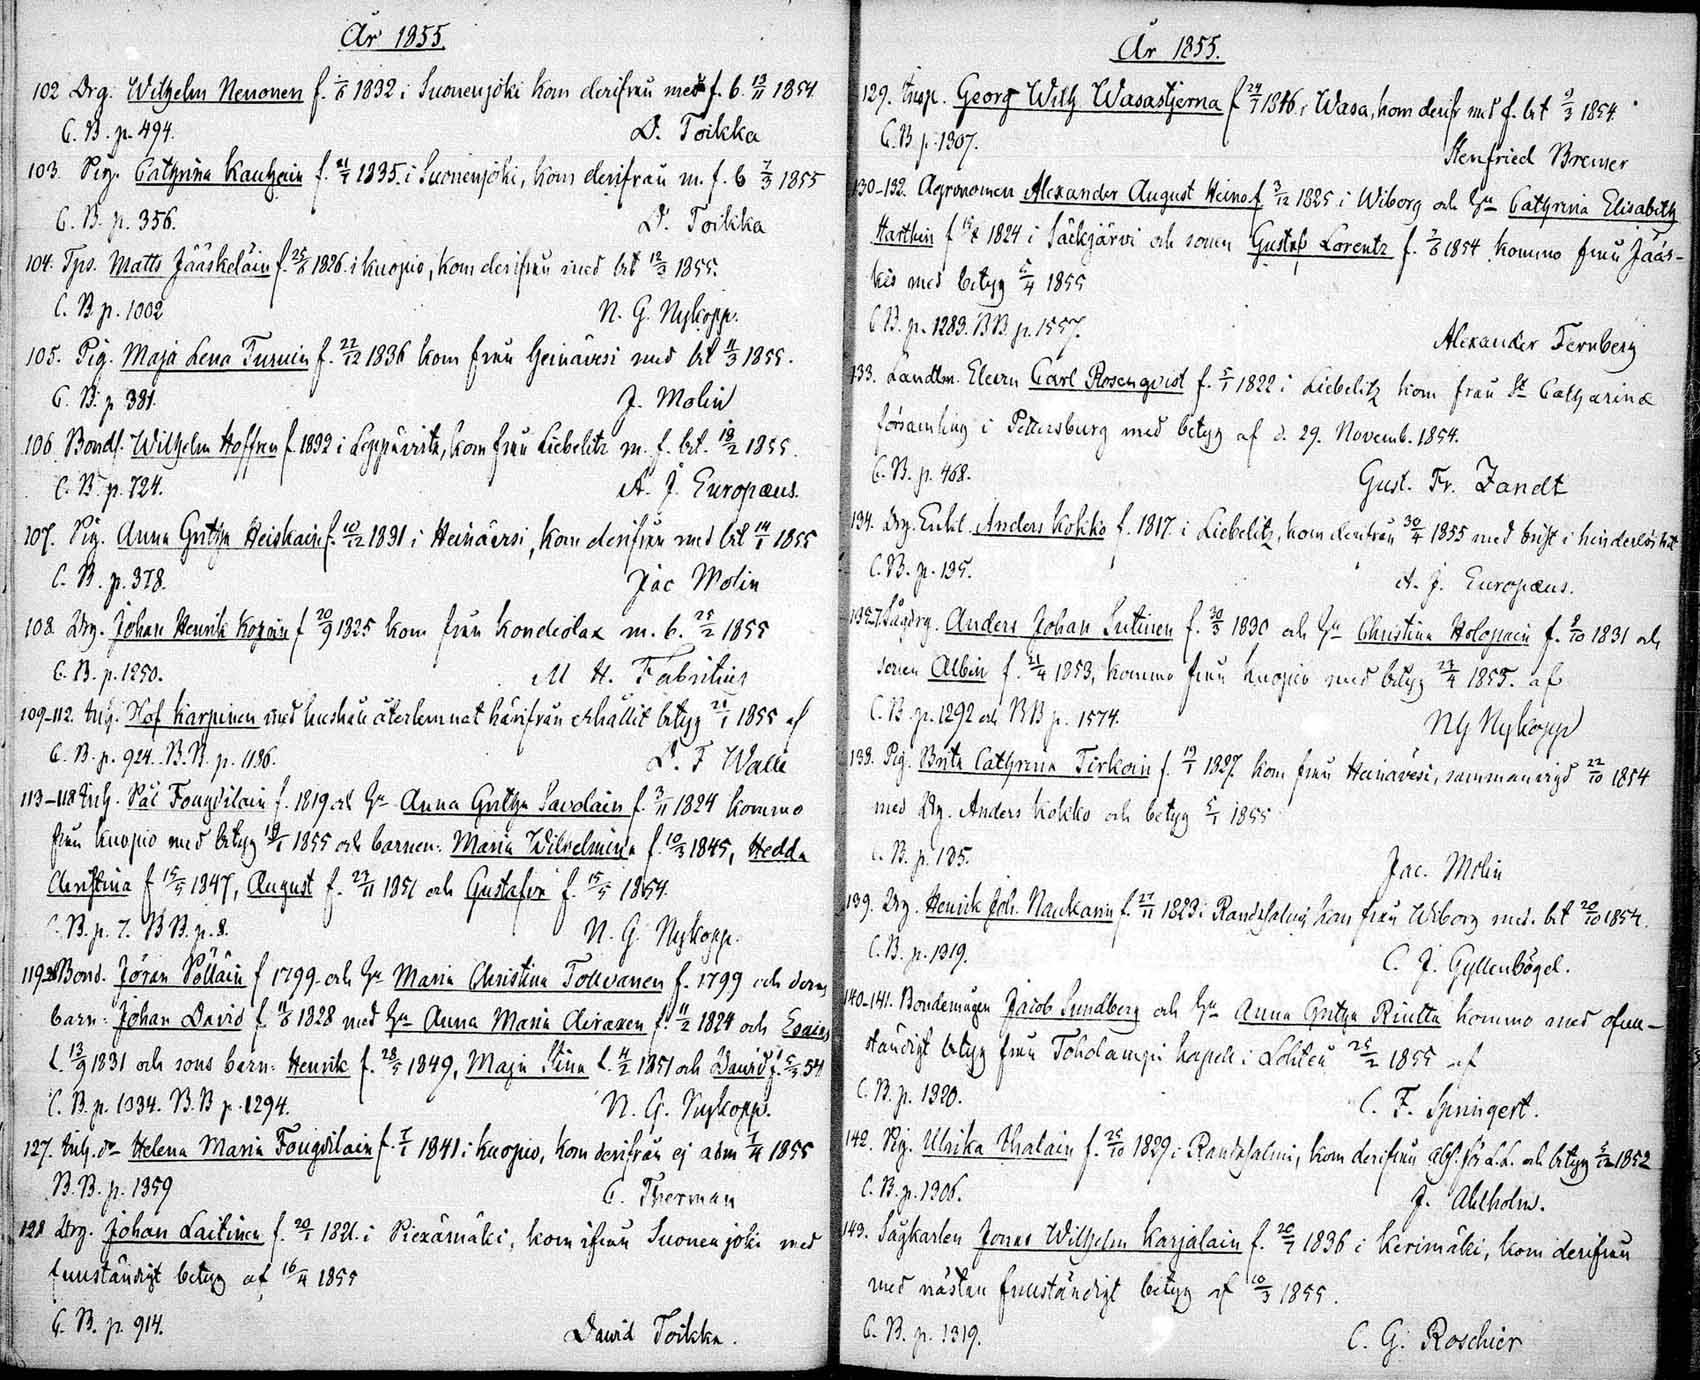 År 1855.
102 Drg. Wilhelm Nenonen f. 1832 i Suonenjoki kom derifrån med f. b. 13/11 1854
C. B. p. 494. D. Toikka
103. Pig. Cathrina Kauhain f. 1835. i Suonenjoki, kom derifrån m. f. b 7/3 1855
C. B. p. 356. D. Toikka
104. Tps. Matts Jääskeläin f. 1826. i Kuopio, kom derifrån med bet 12/3 1855.
C. B. p. 1002 N. G. Nykopp.
105. Pig. Maja Lena Turuin f. 22/12 1836 kom från Heinävesi med bet 11/3 1855.
C. B. p. 381. J. Molin
106. Bonds. Wilhelm Hoffren f. 1832 i Leppävirta, kom från Liebelitz m. f. bet. 18/2 1855.
C. B. p. 724. A. J. Europæus.
107. Pig. Anna Gretha Heiskain f. 10/12 1831 i Heinävesi, kom derifrån med bet 14/1 1855
C. B. p. 378. Jac Molin
108. Drg. Johan Henrik f 20/9 1825 kom från Kondiolax m. b. 25/2 1855
C. B. p. 1250. M. H. Fabritius
109-112. Inh. Olof Karpinen med hushåll återlemnat härifrån erhållit betyg 21/1 1855 af
C. B. p. 924. B. B. p. 1186. D. F Walle
113-118 Inh. Pål Fougdilain f. 1819 och Hu Anna Gretha Savolain f. 3/11 1824 kommo
från Kuopio med betyg 1855 och barnen: Maria Wilhelmina f. 10/3 1845, Hedda
Christina f 15/5 1847, August f. 27/11 1851 och Gustafva f. 15/5 1854.
C. B. p. 7. B B. p. 8. N. G. Nykopp.
Bond. Jöran Pöllain f 1799. och Hu Maria Christina Tolvanen f. 1799 och deras
barn: Johan David f. 1828 med Hu Anna Maria Airaxen f. 11/2 1824 och Esaias
f. 13/9 1831 och sons barn: Henrik f. 28/5 1849, Maja Stina f. 4/2 1851 och David f. 54
C. B. p. 1034. B. B p. 1294. N. G. Nykopp.
127. Inh. dr Helena Maria Fougdilain f. 1841 i Kuopio, kom derifrån ej adm 7/4 1855
B. B. p. 1359 C. Therman
128 Drg. Johan Laitinen f. 20/1 1821. i Piexämäki, kom ifrån Suonenjoki med
fullständigt betyg af 16/4 1855
C. B. p. 914. David Toikka.
År 1855.
129. Insp. Georg Wilh Wasastjerna f 24/7 i Wasa, kom derifr med f. bet 9/3 1854.
C. B p. 1307. Stenfried Bremer
130-132. Agronomen Alexander August Heino f 3/12 1825 i Wiborg och Hu Cathrina Elisabeth
f 1824 i Säckjärvi och sonen Gustaf Lorentz f. 1854 kommo från Jääs-
kis med betyg 5/4 1855
C B. p. 1283. B B p. 1557. Alexander Fernberg
133. Landtm. Eleven Carl Rosenqvist f. 5/1 1822 i Liebelitz kom från St Catharinæ
församling i Pettersburg med betyg af d. 29. Novemb. 1854.
C. B. p. 468. Gust. Fr. Zandt
134. Drg. Enkl. Anders Kokko f. 1817. i Liebelitz, kom derifrån 30/4 1855 med brist i
C. B. p. 135. A. J. Europæus.
135-7. Sågdrg. Anders Johan Sutinen f. 30/3 1830 och Hu Christina Holopain f. 9/10 1831 och
sonen Albin f. 21/4 1853, kommo från Kuopio med betyg 27/4 1855. af
C. B. p. 1292 och B B p. 1574. NG Nykopp
138. Pig. Brita Cathrina Tirkoin f. 19/1 1827. kom från Heinävesi, sammanvigd 22/10 1854
med Drg. Anders Kokko och betyg 5/1 1855
C. B. p. 135. Jac. Molin
139. Drg. Henrik Joh. Naukarin f. 27/11 1823 i Randasalmi, kom från Wiborg med. bet 20/10 1854.
C. B. p. 1319. C. J. Gyllenbögel.
140-141. Bondemågen Jacob Sundberg och Hu Anna Gretha Rintta kommo med ofull-
ständigt betyg från Toholampi kapell i Lohteå 25/2 1855 af
C. B. p. 1320. C. F. Springert.
142. Pig. Ulrika Ihalain f. 25/10 1829 i Randasalmi, kom derifrån och betyg 5/12 1852
C. B. p. 1306. J. Ahlholm.
143. Sågkarlen Jonas Wilhelm Karjalain f. 20/7 1836 i Kerimäki, kom derifrån
med nästan fullständigt betyg af 10/3 1855.
C. B. p. 1319. C. G. Roschier